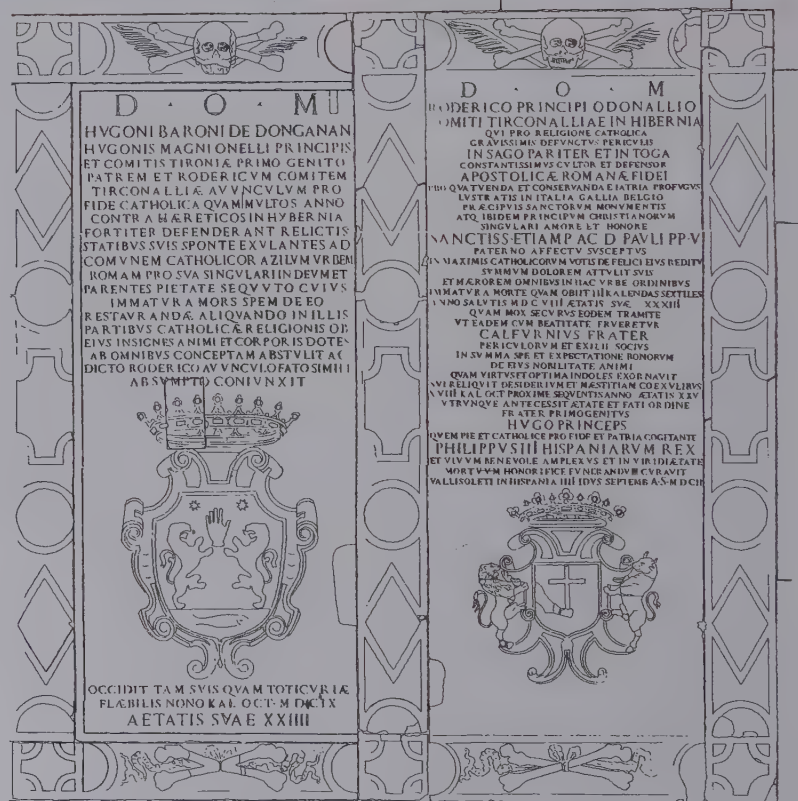 D · O · M
HVGONI BARONI DE DONGANAN
HVGONIS MAGNI ONELLI PRINCIPIS
ET COMITIS TIRONIÆ PRIMO GENITO
PATREM ET RODERICVM COMITEM
TIRCONALLIÆ AVVNCVLVM PRO
FIDE CATHOLICA QVAM MVLTOS ANNO
CONTRA HÆRETICOS IN HYBERNIA
FORTITER DEFENDERANT RELICTIS
STATIBVS SVIS SPONTE EXVLANTES AD
COMVNEM CATHOLICOR AZILVM VRBEM
ROMAM PRO SVA SINGVLARI IN DEVM ET
PARENTES PIETATE SEQVVTO CVIVS
IMMATVRA MORS SPEM DE EO
RESTAVRANDÆ ALIQVANDO IN ILLIS
PARTIBVS CATHOLICÆ RELIGIONIS OB
EIVS INSIGNES ANIMI ET CORPORIS DOTE
AB OMNIBVS CONCEPTAM ABSTVLIT AC
DICTO RODERICO AVVNCVLO FATO SIMILI
ABSVMPTO CONIVNXIT
OCCIDIT TAM SVIS QVAM TOTI CVRIÆ
FLÆBILIS NONO KAL OCT· M DC IX
AETATIS SVAE XXIIII
D · O · M
RODERICO PRINCIPI ODONALLIO
COMITI TIRCONALLIAE IN HIBERNIA
QVI PRO RELIGIONE CATHOLICA
GRAVISSIMIS DEFVNCTVS PERICVLIS
IN SAGO PARITER ET IN TOGA
CONSTANTISSIMVS CVLTOR ET DEFENSOR
APOSTOLICÆ ROMANÆ FIDEI
PRO QVA TVENDA ET CONSERVANDA E PATRIA PROFVGVS
LVSTRATIS IN ITALIA GALLIA BELGIO
PRÆCIPVIS SANCTORVM MONVMENTIS
ATQ IBIDEM PRINCIPVM CHRISTIANORVM
SINGVLARI AMORE ET HONORE
SANCTISS·ETIAM P AC D PAVLI PP·V
PATERNO AFFECTV SVSCEPTVS
IN MAXIMIS CATHOLICORVM VOTIS DE FELICI EIVS REDITV
SVMMVM DOLOREM ATTVLIT SVIS
ET MÆROREM OMNIBVS IN HAC VRBE ORDINIBVS
IMMATVRA MORTE QVAM OBIIT III KALENDAS SEXTILES
ANNO SALVTIS M D C VIII ÆTATIS SVÆ XXXIII
QVAM MOX SECVRVS EODEM TRAMITE
VT EADEM CVM BEATITATE FRVERETVR
CALFVRNIVS FRATER
PERICVLORVM ET EXILII SOCIVS
IN SVMMA SPE ET EXPECTATIONE BONORVM
DE EIVS NOBILITATE ANIMI
QVAM VIRTVS ET OPTIMA INDOLES EXORNAVIT
SVI RELIQVIT DESIDERIVM ET MÆSTITIAM COEXVLIBVS
XVIII KAL OCT PROXIME SEQVENTIS ANNO ÆTATIS XXV
VTRVNQVE ANTECESSIT ÆTATE ET FATI ORDINE
FRATER PRIMOGENITVS
HVGO PRINCEPS
QVEM PIE ET CATHOLICE PRO FIDE ET PATRIA COGITANTE
PHILIPPVS III HISPANIARVM REX
ET VIVVM BENEVOLE AMPLEXVS ET IN VIRIDI ÆTATE
MORTVVM HONORIFICE FVNERANDVM CVRAVIT
VALLISOLETI IN HISPANIA IIII IDVS SEPTEMB A·S·M DC II